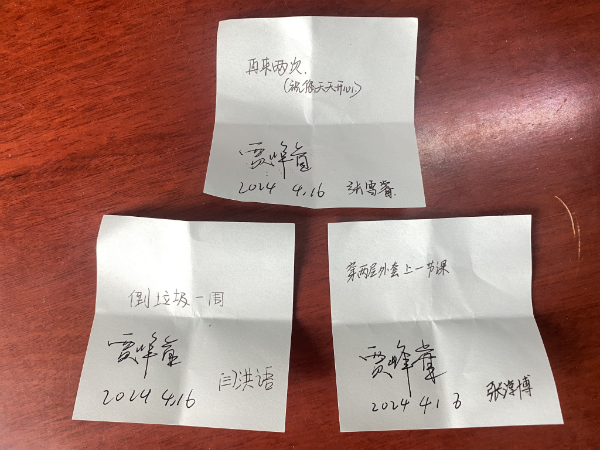 再来两次.
(祝你天天开心)
贾峰
2024 4.16 张雪
倒垃圾一周
贾峰
2024 4.16 闫洪语
穿两层外套上一节课
贾峰
2024 4.1 张淳博